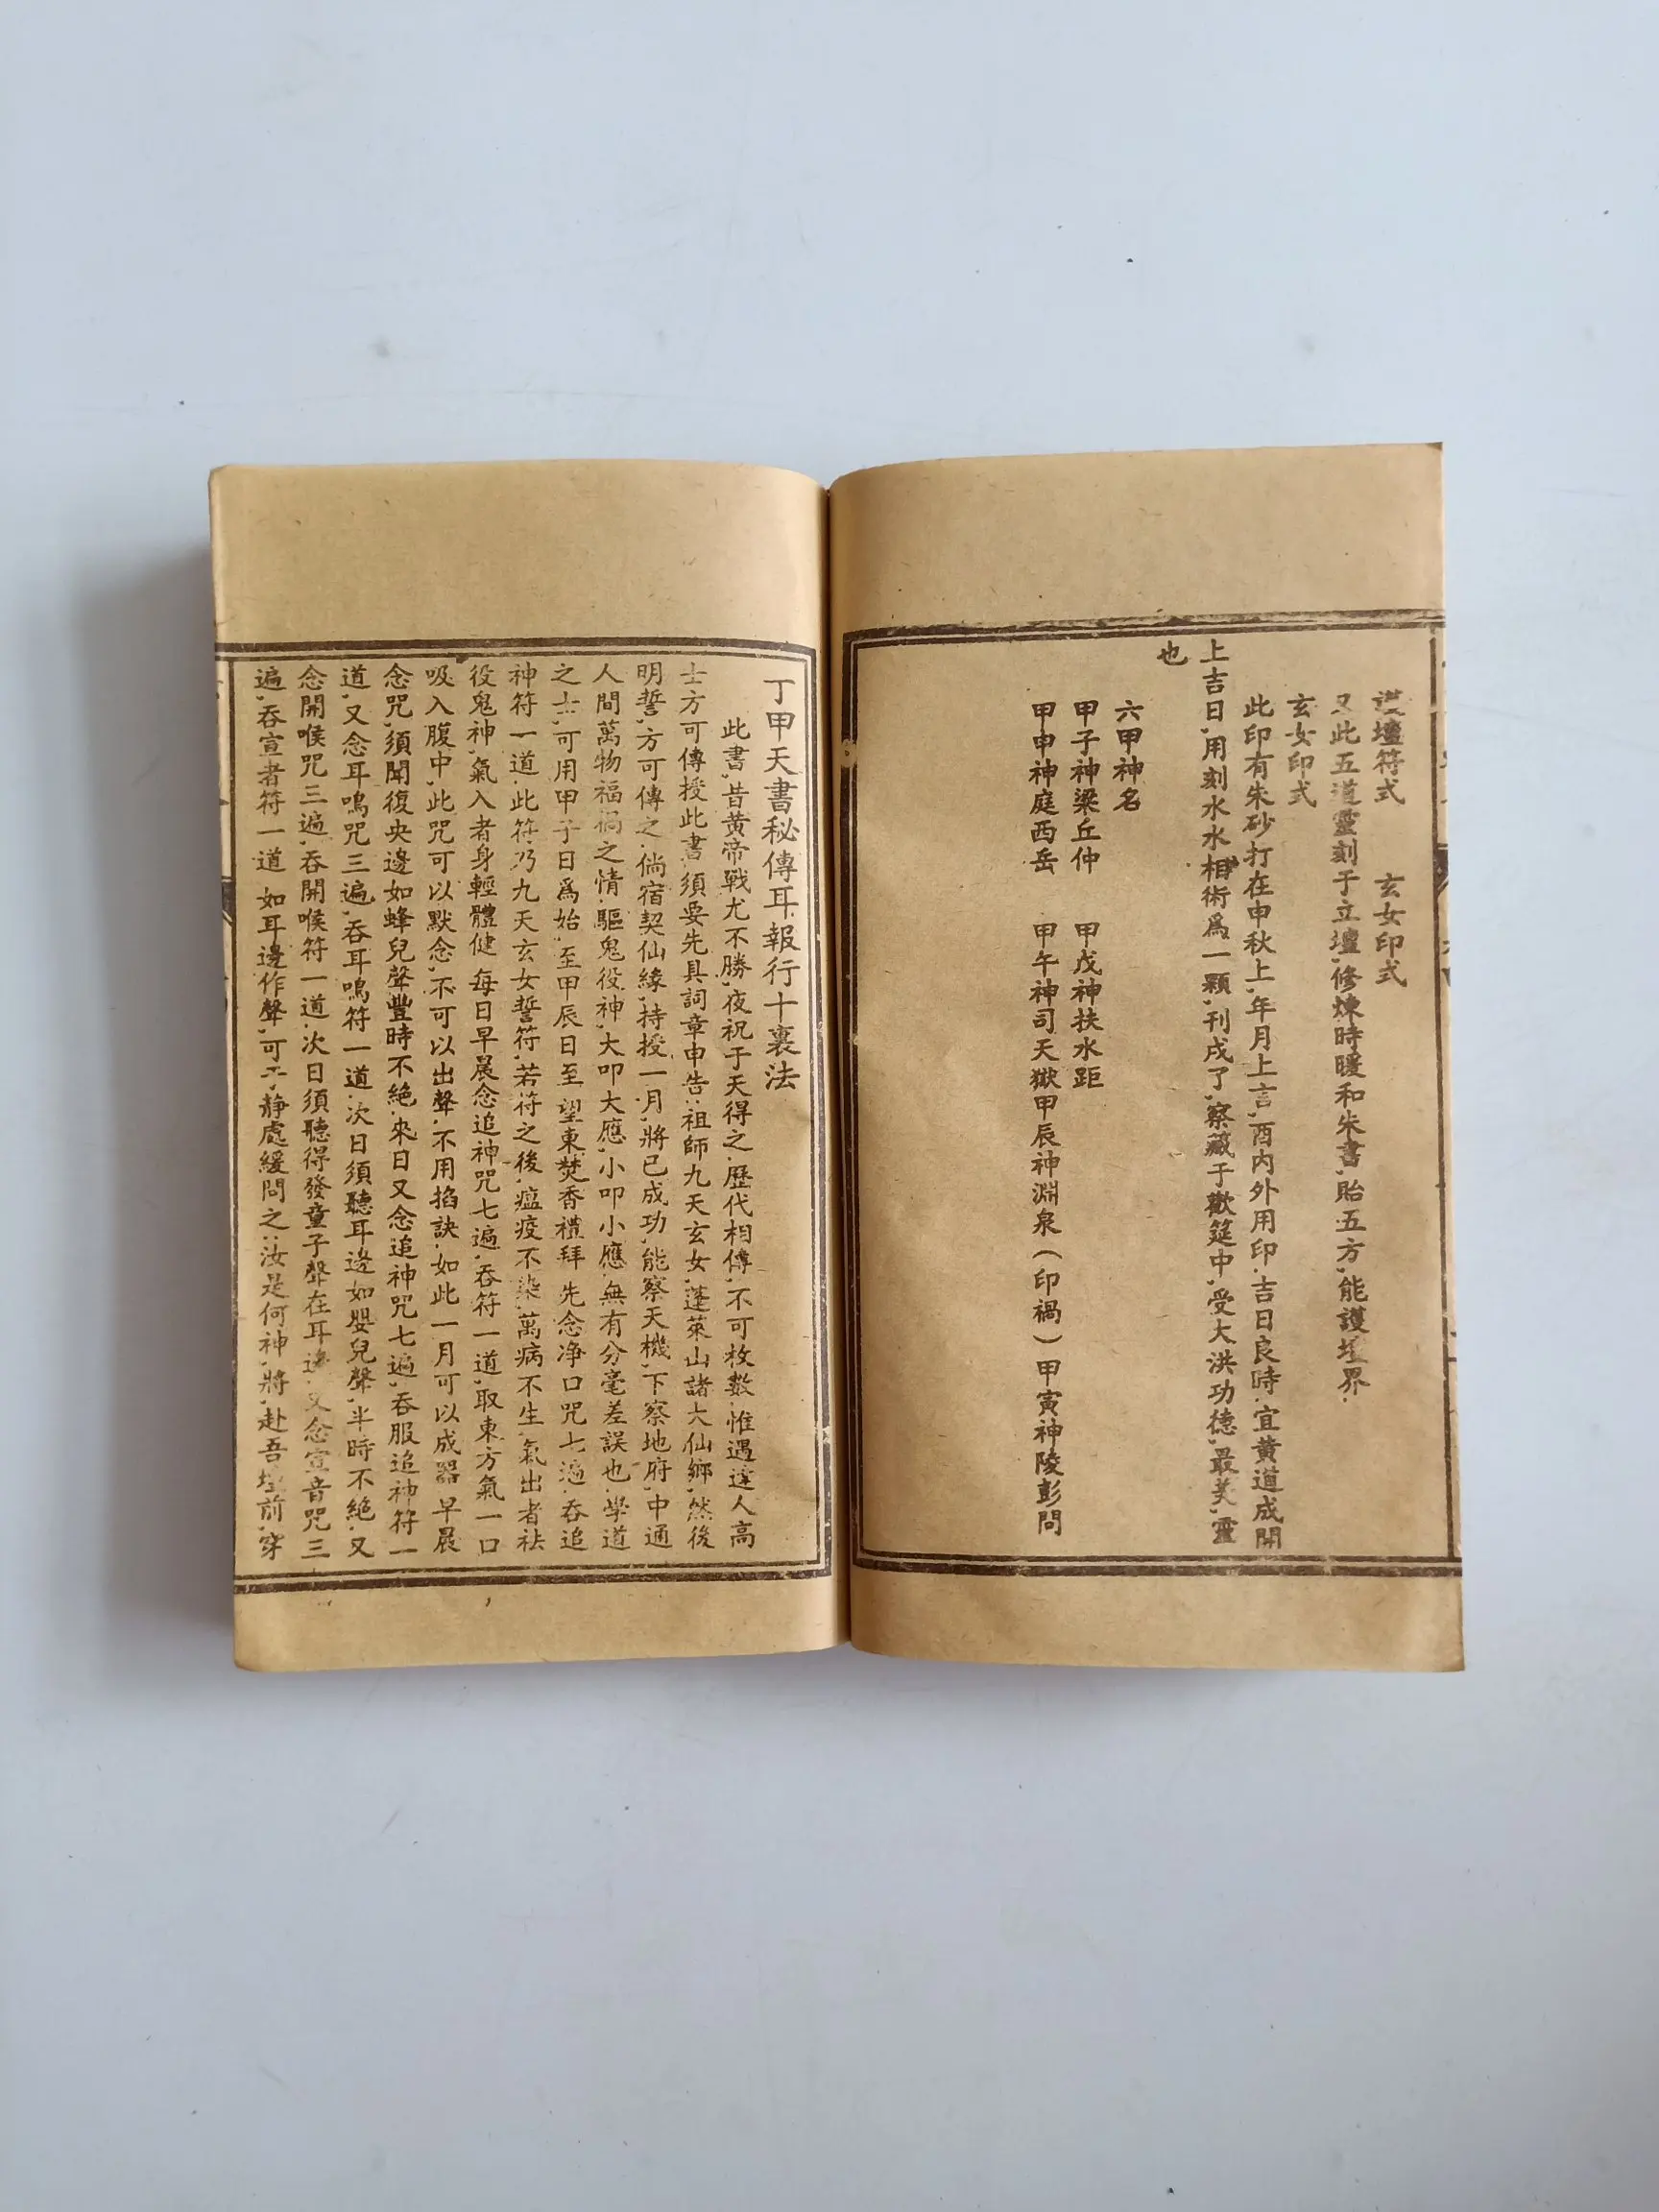 護壇符式　玄女印式
又此五道靈刻于立壇,修煉時暖和朱書,貽五方,能護壇界.
玄女印式
此印有朱砂打在申秋上,年月上言,酉內外用印.吉日良時.宜黄道成開
上吉日,用刻水水相術為一顆,刊戌了,察藏于歡筵中,受大洪功德,最美,靈
也
六甲神名
甲子神梁丘仲　甲戊神扶水距
甲申神庭西岳　甲午神司天獄甲辰神淵泉(印禍)甲寅神陵彭問
丁甲天書秘傳耳報行十裏法
此書,昔黃帝戰尤不勝,夜祝于天得之.歷代相傳,不可枚數,惟遇達人高
士方可傳授此書,須要先具詞章申告:祖師九天玄女,蓬萊山諸大仙鄉,然後
明誓,方可傳之.倘宿契仙緣,持授一月,將已成功,能察天機,下察地府,中通
人間萬物福禍之情,驅鬼役神,大叩大應,小叩小應,無有分毫差誤也,學道
之士,可用甲子日爲始,至甲辰日至望東焚香禮拜,先念净口咒七遍,吞追
神符一道,此符乃九天玄女誓符,若符之後,瘟疫不染,萬病不生,氣出者祛
役鬼神,氣入者身輕體健,每日早晨念追神咒七遍,吞符一道,取東方氣一口
吸入腹中,此咒可以默念,不可以出聲,不用掐訣,如此一月可以成器,早晨
念咒,須聞復央邊如蜂兒聲豐時不絕,來日又念追神咒七遍,吞服追神符一
道,又念耳鳴咒三遍,吞耳鳴符一道,次日須聽耳邊如嬰兒聲,半時不絕,又
念開喉咒三遍,吞開喉符一道,次日須聽得發童子聲在耳邊,又念宣音咒三
遍,吞宣者符一道,如耳邊作聲,可于靜處緩問之:汝是何神,將,赴吾壇前,穿